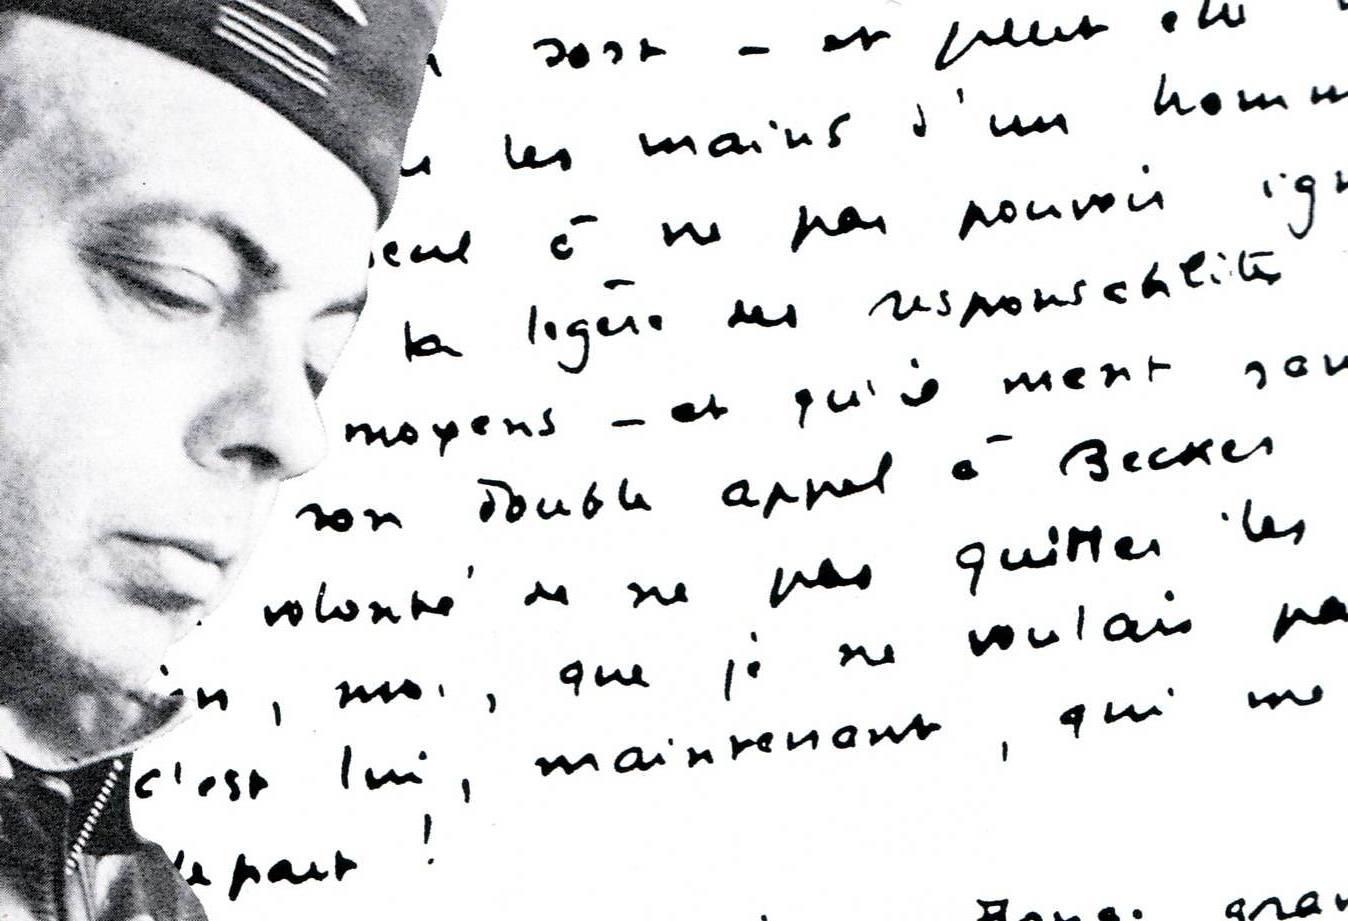 sort - et peut être
les mains d'un homm
seul à ne pas pouvoir ign
la légère des responsabilités
moyens - et qu'il ment sou
son double appel à Becker
volonté de ne pas quitter les
moi, que je ne voulais pa
c'est lui, maintenant, qui me
départ !
gran